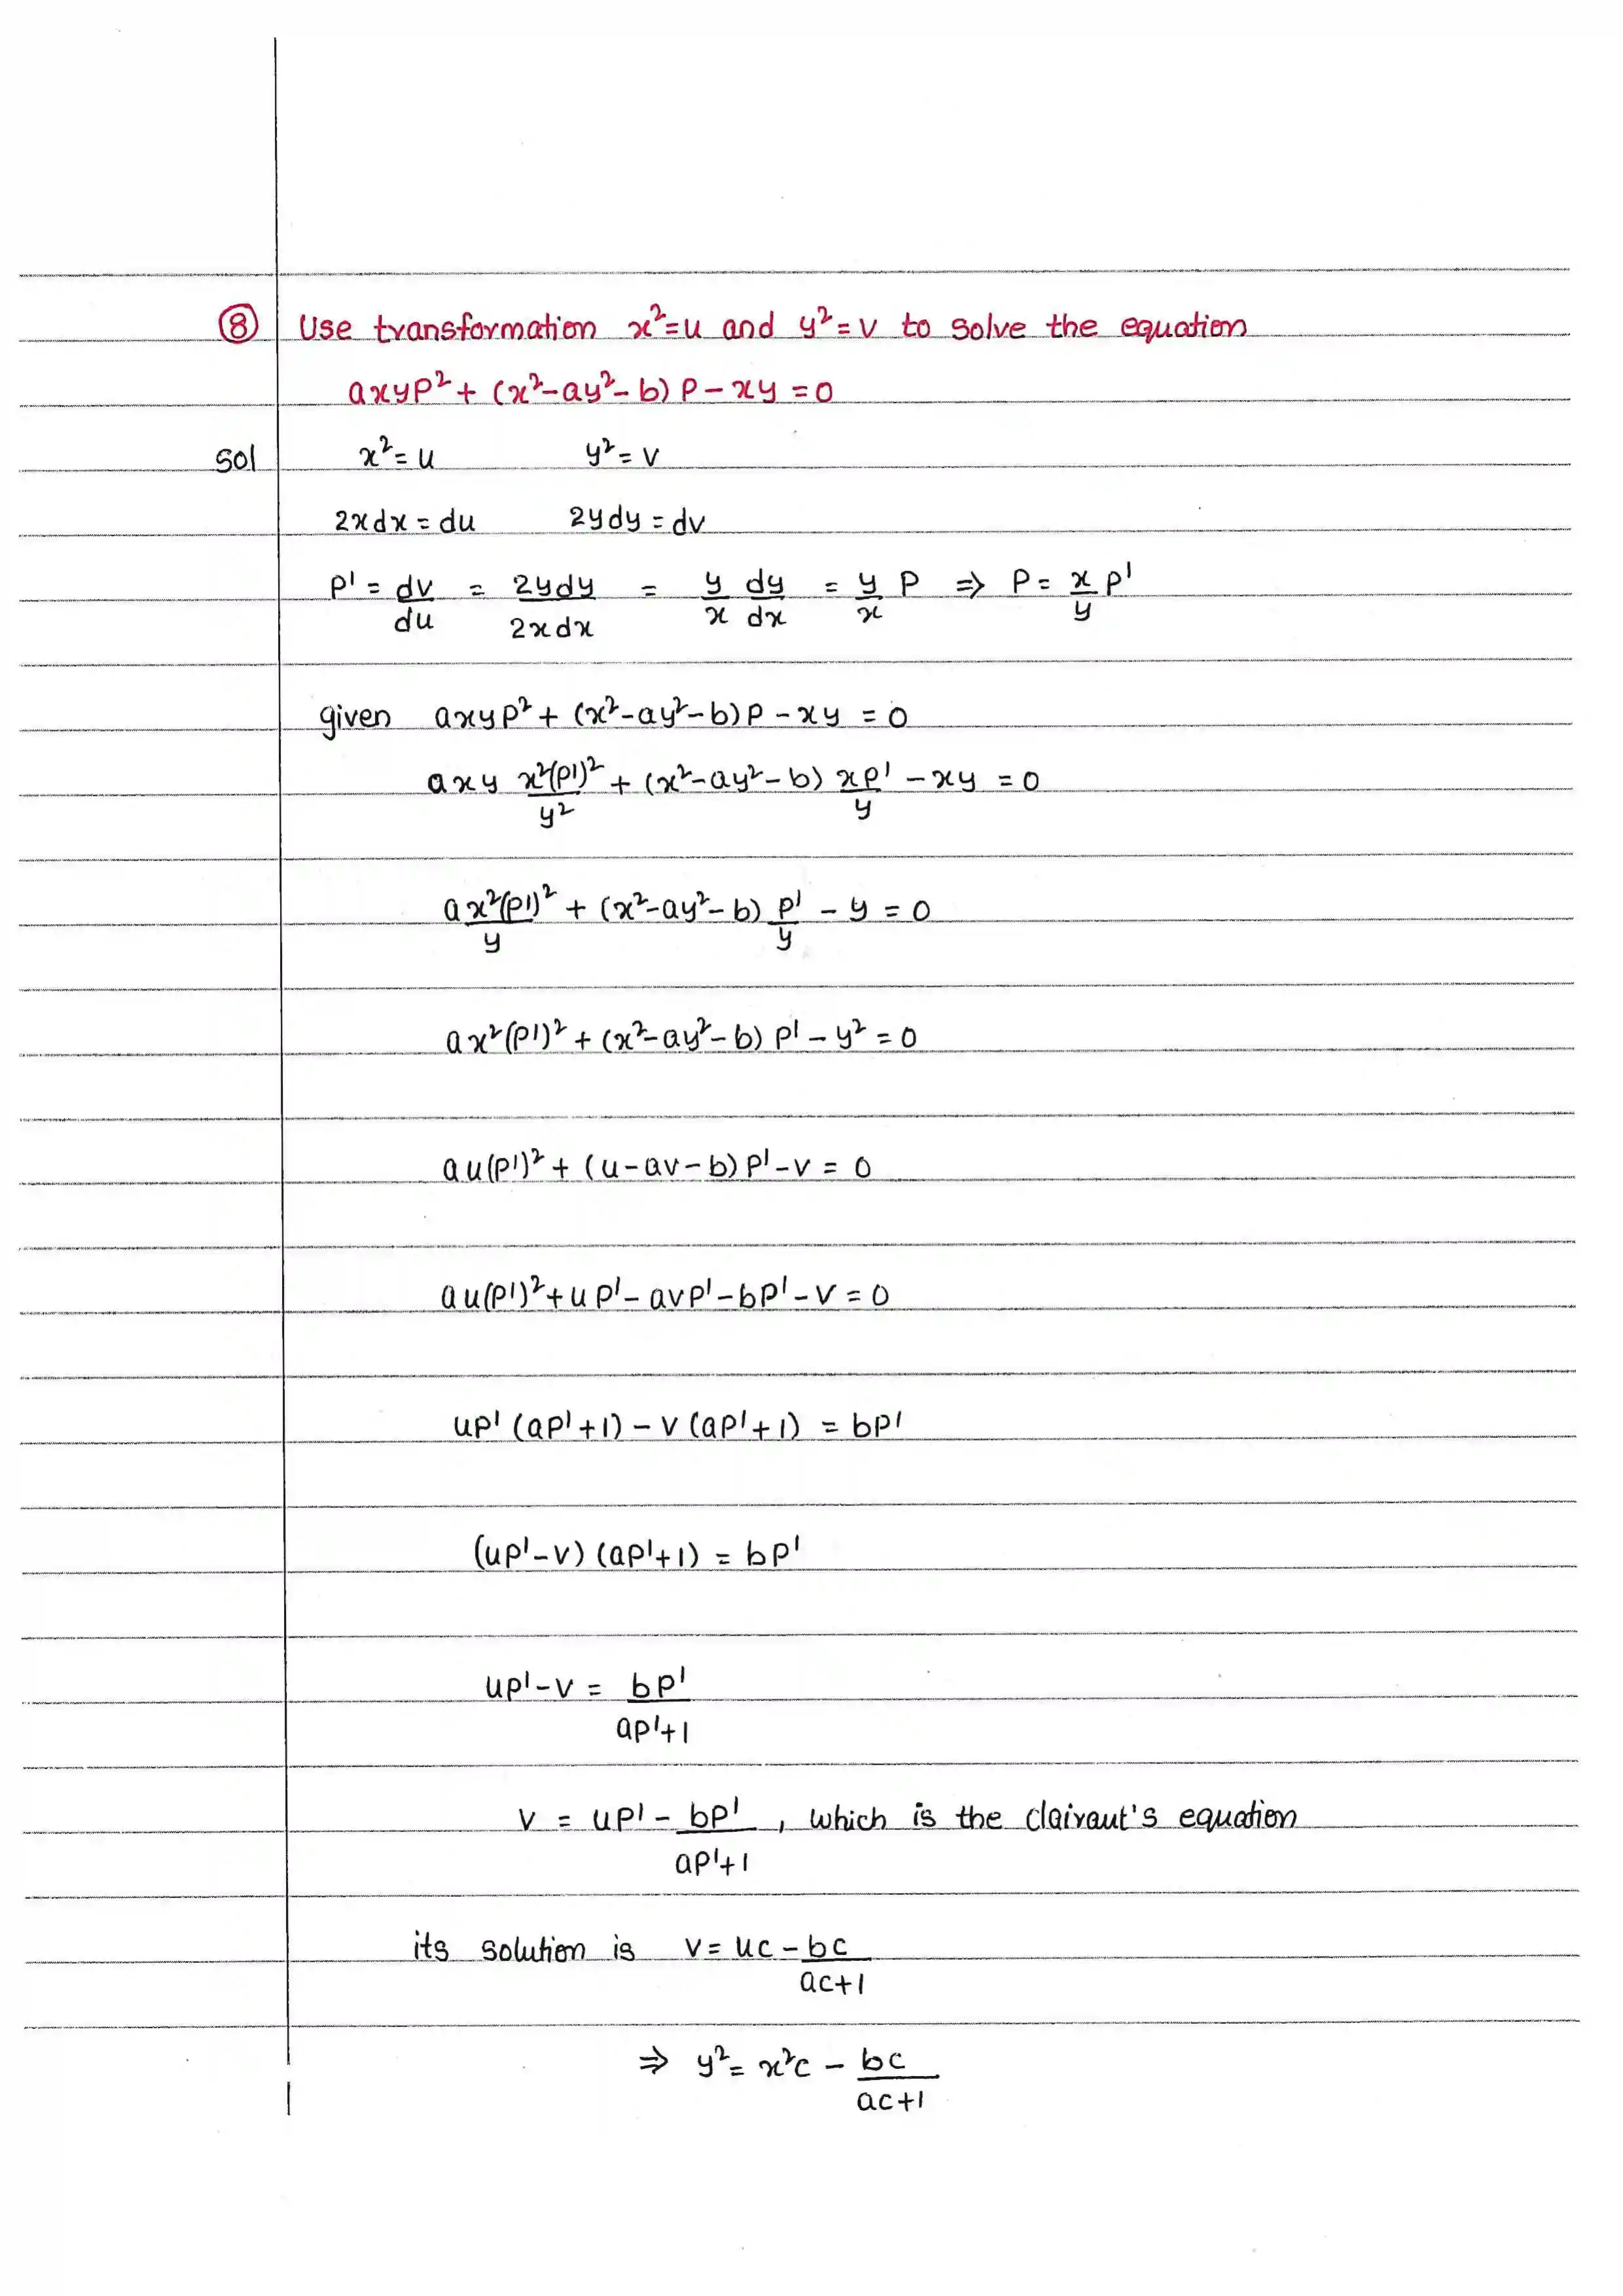 ⑧ Use transformation x²=u and y²=v to solve the equation
axyp² + (x²-ay²-b) p - xy = 0
Sol x² = u y² = v
2xdx = du 2ydy = dv
p' = dv/du = 2ydy/2xdx = y/x dy/dx = y/x p ⇒ p = x/y p'
given axyp² + (x²-ay²-b) p - xy = 0
axy x²(p')²/y² + (x²-ay²-b) xp'/y - xy = 0
ax²(p')²/y + (x²-ay²-b) p'/y - y = 0
ax²(p')² + (x²-ay²-b) p' - y² = 0
au(p')² + (u-av-b) p' - v = 0
au(p')² + up' - avp' - bp' - v = 0
up' (ap'+1) - v (ap'+1) = bp'
(up'-v) (ap'+1) = bp'
up'-v = bp'/ap'+1
v = up' - bp'/ap'+1 , which is the clairaut's equation
its solution is v = uc - bc/ac+1
⇒ y² = x²c - bc/ac+1